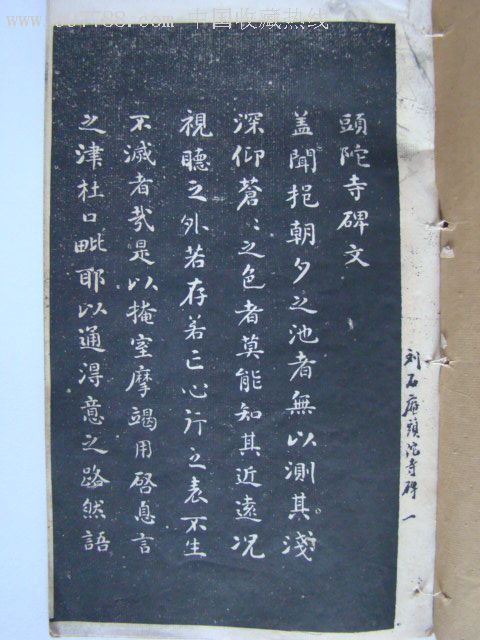 www.997788.com 中国收藏热线
頭陀寺碑文
盖聞挹朝夕之池者無以測其淺
深仰蒼〻之色者莫能知其近遠况
視聽之外若存若亡心行之表不生
不滅者哉是以掩室摩竭用啓息言
之津杜口毗耶以通得意之路然語
刘石庵頭陀寺碑 一